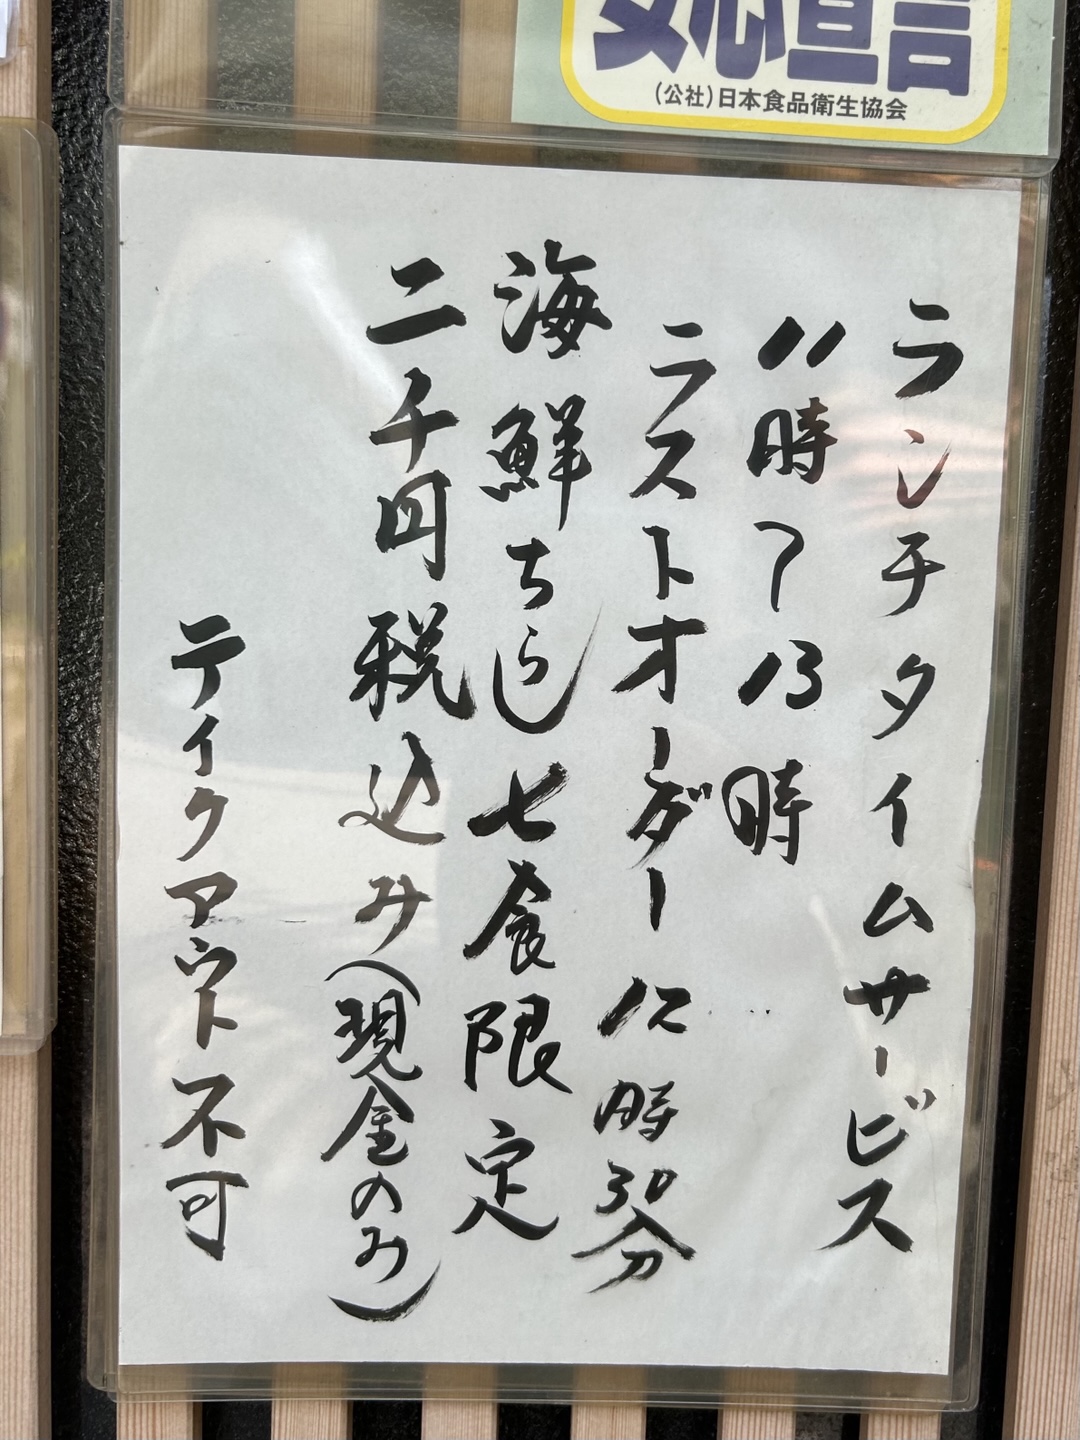 安心宣言
(公社)日本食品衛生協会
ランチタイムサービス
11時〜13時
ラストオーダー12時30分
海鮮ちらし七食限定
二千円税込み(現金のみ)
テイクアウト不可